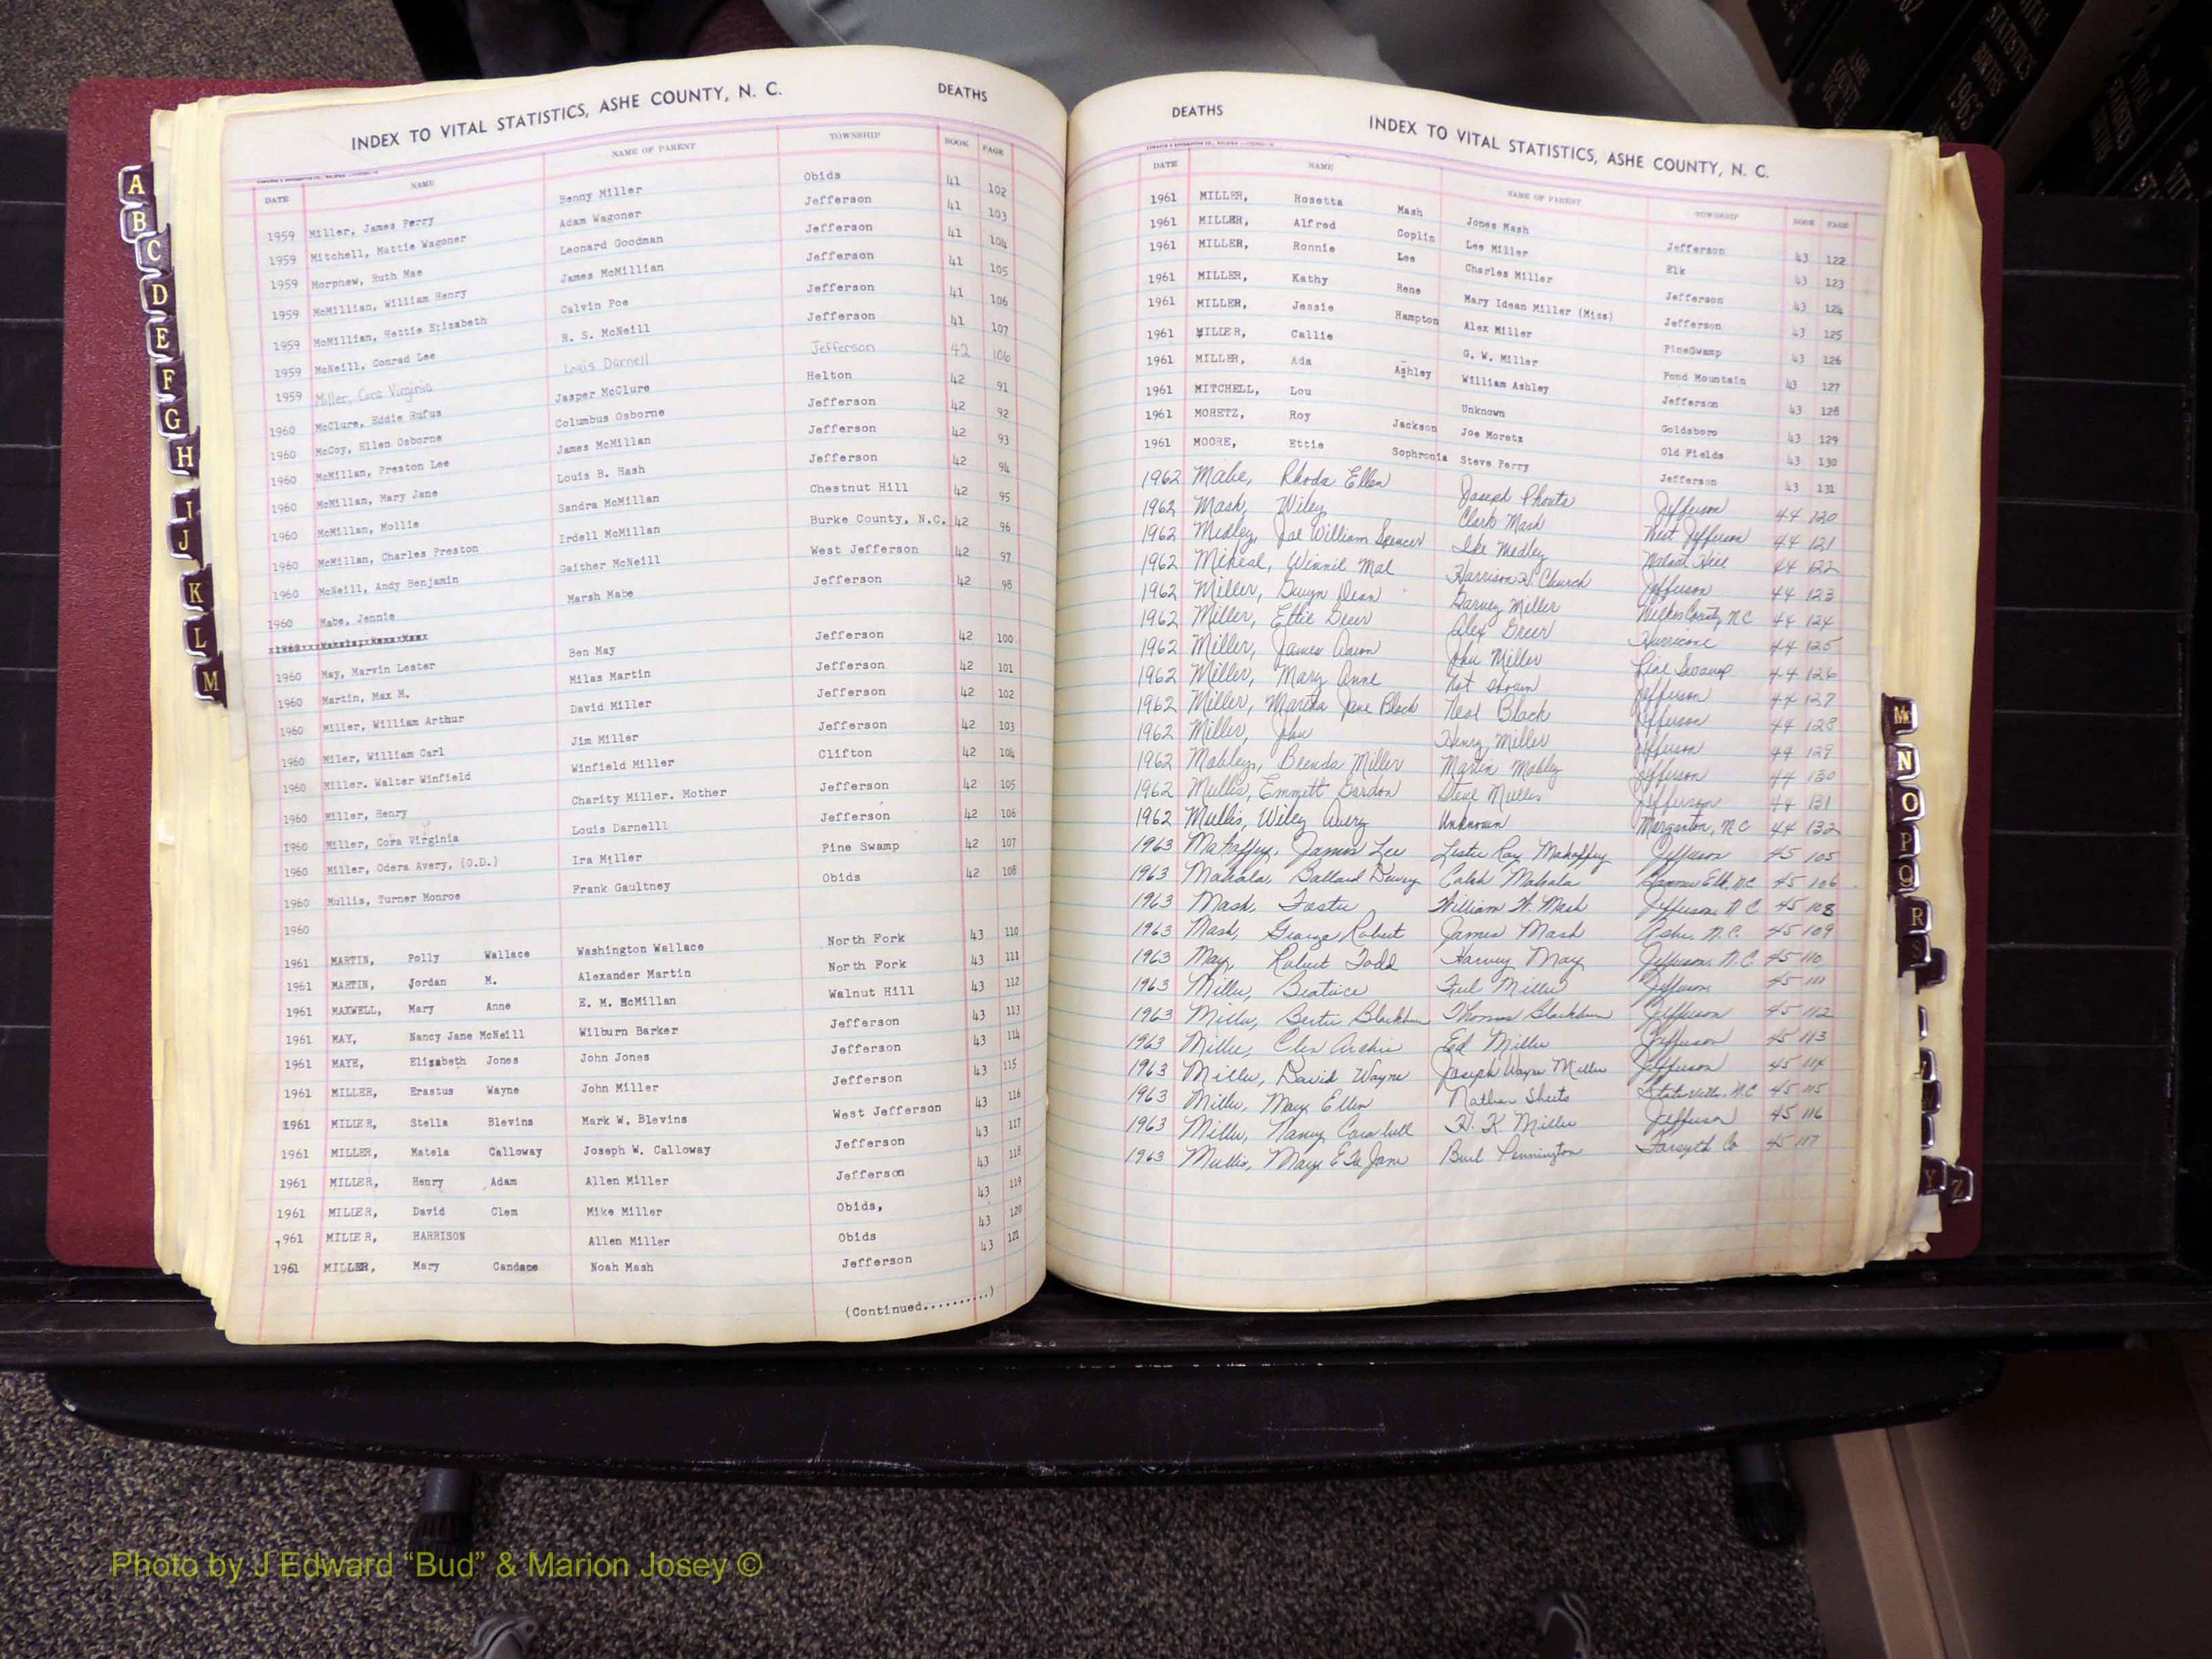 INDEX TO VITAL STATISTICS, ASHE COUNTY, N. C. DEATHS
DATE NAME NAME OF PARENT TOWNSHIP BOOK PAGE
1959 Miller, James Perry Benny Miller Obids 41 102
1959 Mitchell, Mattie Wagoner Adam Wagoner Jefferson 41 103
1959 Morphew, Ruth Mae Leonard Goodman Jefferson 41 104
1959 McMillian, William Henry James McMillian Jefferson 41 105
1959 McMillian, Hettie Elizabeth Calvin Poe Jefferson 41 106
1959 McNeill, Conrad Lee R. S. McNeill Jefferson 41 107
1959 Miller, Cora Virginia Louis Darnell Jefferson 42 106
1960 McClure, Eddie Rufus Jasper McClure Helton 42 91
1960 McCoy, Ellen Osborne Columbus Osborne Jefferson 42 92
1960 McMillan, Preston Lee James McMillan Jefferson 42 93
1960 McMillan, Mary Jane Louis B. Hash Jefferson 42 94
1960 McMillan, Mollie Sandra McMillan Chestnut Hill 42 95
1960 McMillan, Charles Preston Irdell McMillan Burke County, N.C. 42 96
1960 McNeill, Andy Benjamin Gaither McNeill West Jefferson 42 97
1960 Mabe, Jennie Marsh Mabe Jefferson 42 98
1960 May, Marvin Lester Ben May Jefferson 42 100
1960 Martin, Max M. Milas Martin Jefferson 42 101
1960 Miller, William Arthur David Miller Jefferson 42 102
1960 Miler, William Carl Jim Miller Jefferson 42 103
1960 Miller. Walter Winfield Winfield Miller Clifton 42 104
1960 Miller, Henry Charity Miller. Mother Jefferson 42 105
1960 Miller, Cora Virginia Louis Darnelll Jefferson 42 106
1960 Miller, Odera Avery, (O.D.) Ira Miller Pine Swamp 42 107
1960 Mullis, Turner Monroe Frank Gaultney Obids 42 108
1960
1961 MARTIN, Polly Wallace Washington Wallace North Fork 43 110
1961 MARTIN, Jordan M. Alexander Martin North Fork 43 111
1961 MAXWELL, Mary Anne E. M. McMillan Walnut Hill 43 112
1961 MAY, Nancy Jane McNeill Wilburn Barker Jefferson 43 113
1961 MAYE, Elizabeth Jones John Jones Jefferson 43 114
1961 MILLER, Erastus Wayne John Miller Jefferson 43 115
1961 MILLER, Stella Blevins Mark W. Blevins West Jefferson 43 116
1961 MILLER, Matela Calloway Joseph W. Calloway Jefferson 43 117
1961 MILLER, Henry Adam Allen Miller Jefferson 43 118
1961 MILLER, David Clem Mike Miller Obids, 43 119
1961 MILLER, HARRISON Allen Miller Obids 43 120
1961 MILLER, Mary Candace Noah Mash Jefferson 43 121
(Continued..........)
DEATHS INDEX TO VITAL STATISTICS, ASHE COUNTY, N. C.
DATE NAME NAME OF PARENT TOWNSHIP BOOK PAGE
1961 MILLER, Rosetta Mash Jones Mash Jefferson 43 122
1961 MILLER, Alfred Coplin Lee Miller Elk 43 123
1961 MILLER, Ronnie Lee Charles Miller Jefferson 43 124
1961 MILLER, Kathy Rene Mary Idean Miller (Miss) Jefferson 43 125
1961 MILLER, Jessie Hampton Alex Miller PineSwamp 43 126
1961 MILLER, Callie G. W. Miller Pond Mountain 43 127
1961 MILLER, Ada Ashley William Ashley Jefferson 43 128
1961 MITCHELL, Lou Unknown Goldsboro 43 129
1961 MORETZ, Roy Jackson Joe Moretz Old Fields 43 130
1961 MOORE, Ettie Sophronia Steve Perry Jefferson 43 131
1962 Mabe, Rhoda Ellen Joseph Phouts Jefferson 44 120
1962 Mash, Wiley Clark Mash West Jefferson 44 121
1962 Medley, Joe William Spencer Ike Medley Walnut Hill 44 122
1962 Mikeal, Winnie Mae Harrison H. Church Jefferson 44 123
1962 Miller, Dwyn Dean Garvey Miller Wilkes County, NC 44 124
1962 Miller, Effie Greer Alex Greer Hurricane 44 125
1962 Miller, James Aaron John Miller Pine Swamp 44 126
1962 Miller, Mary Anne Not shown Jefferson 44 127
1962 Miller, Martha Jane Black Neal Black Jefferson 44 128
1962 Miller, John Henry Miller Jefferson 44 129
1962 Mobley, Brenda Miller Martin Mobley Jefferson 44 130
1962 Mullis, Emmett Gordon Steve Mullis Jefferson 44 131
1962 Mullis, Wiley Avery Unknown Morganton, NC 44 132
1963 Mahaffey, James Lee Lester Ray Mahaffey Jefferson 45 105
1963 Mahala, Ballard Dewey Caleb Mahala Banner Elk, NC 45 106
1963 Mash, Foster William W. Mash Jefferson, N C 45 108
1963 Mash, George Robert James Mash Ashe N.C. 45 109
1963 May, Robert Todd Harvey May Jefferson, N.C. 45 110
1963 Miller, Beatrice Miller Jefferson 45 111
1963 Miller, Bertie Blackburn Thomas Blackburn Jefferson 45 112
1963 Miller, Clen Archie Ed Miller Jefferson 45 113
1963 Miller, David Wayne Joseph Wayne Miller Jefferson 45 114
1963 Miller, Mary Ellen Nathan Sheets Statesville, N.C 45 115
1963 Miller, Nancy H. K. Miller Jefferson 45 116
1963 Mullis, Mary Etta Jane Burl Pennington Forsyth Co 45 117
A
B
C
D
E
F
G
H
I
J
K
L
M
Mc
N
O
P
Q
R
S
Y
Z
ASHE COUNTY
VITAL STATISTICS BIRTHS 1963
VITAL STATISTICS
Photo by J Edward “Bud” & Marion Josey ©